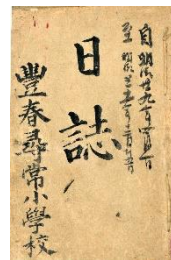 自明治廿九年四月一日
至明治三十年三月三十一日
日誌
豐春尋常小學校